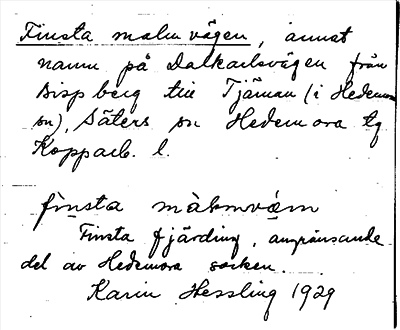 Finsta malmvägen, annat
namn på Dalkarlsvägen från
Bispberg till Tjärnan (i Hedemora
sn), Säters sn Hedemora tg
Kopparb. l.
fìnsta màlmvæ̀m
Finsta fjärding, angränsande
del av Hedemora socken.
Karin Hessling 1929